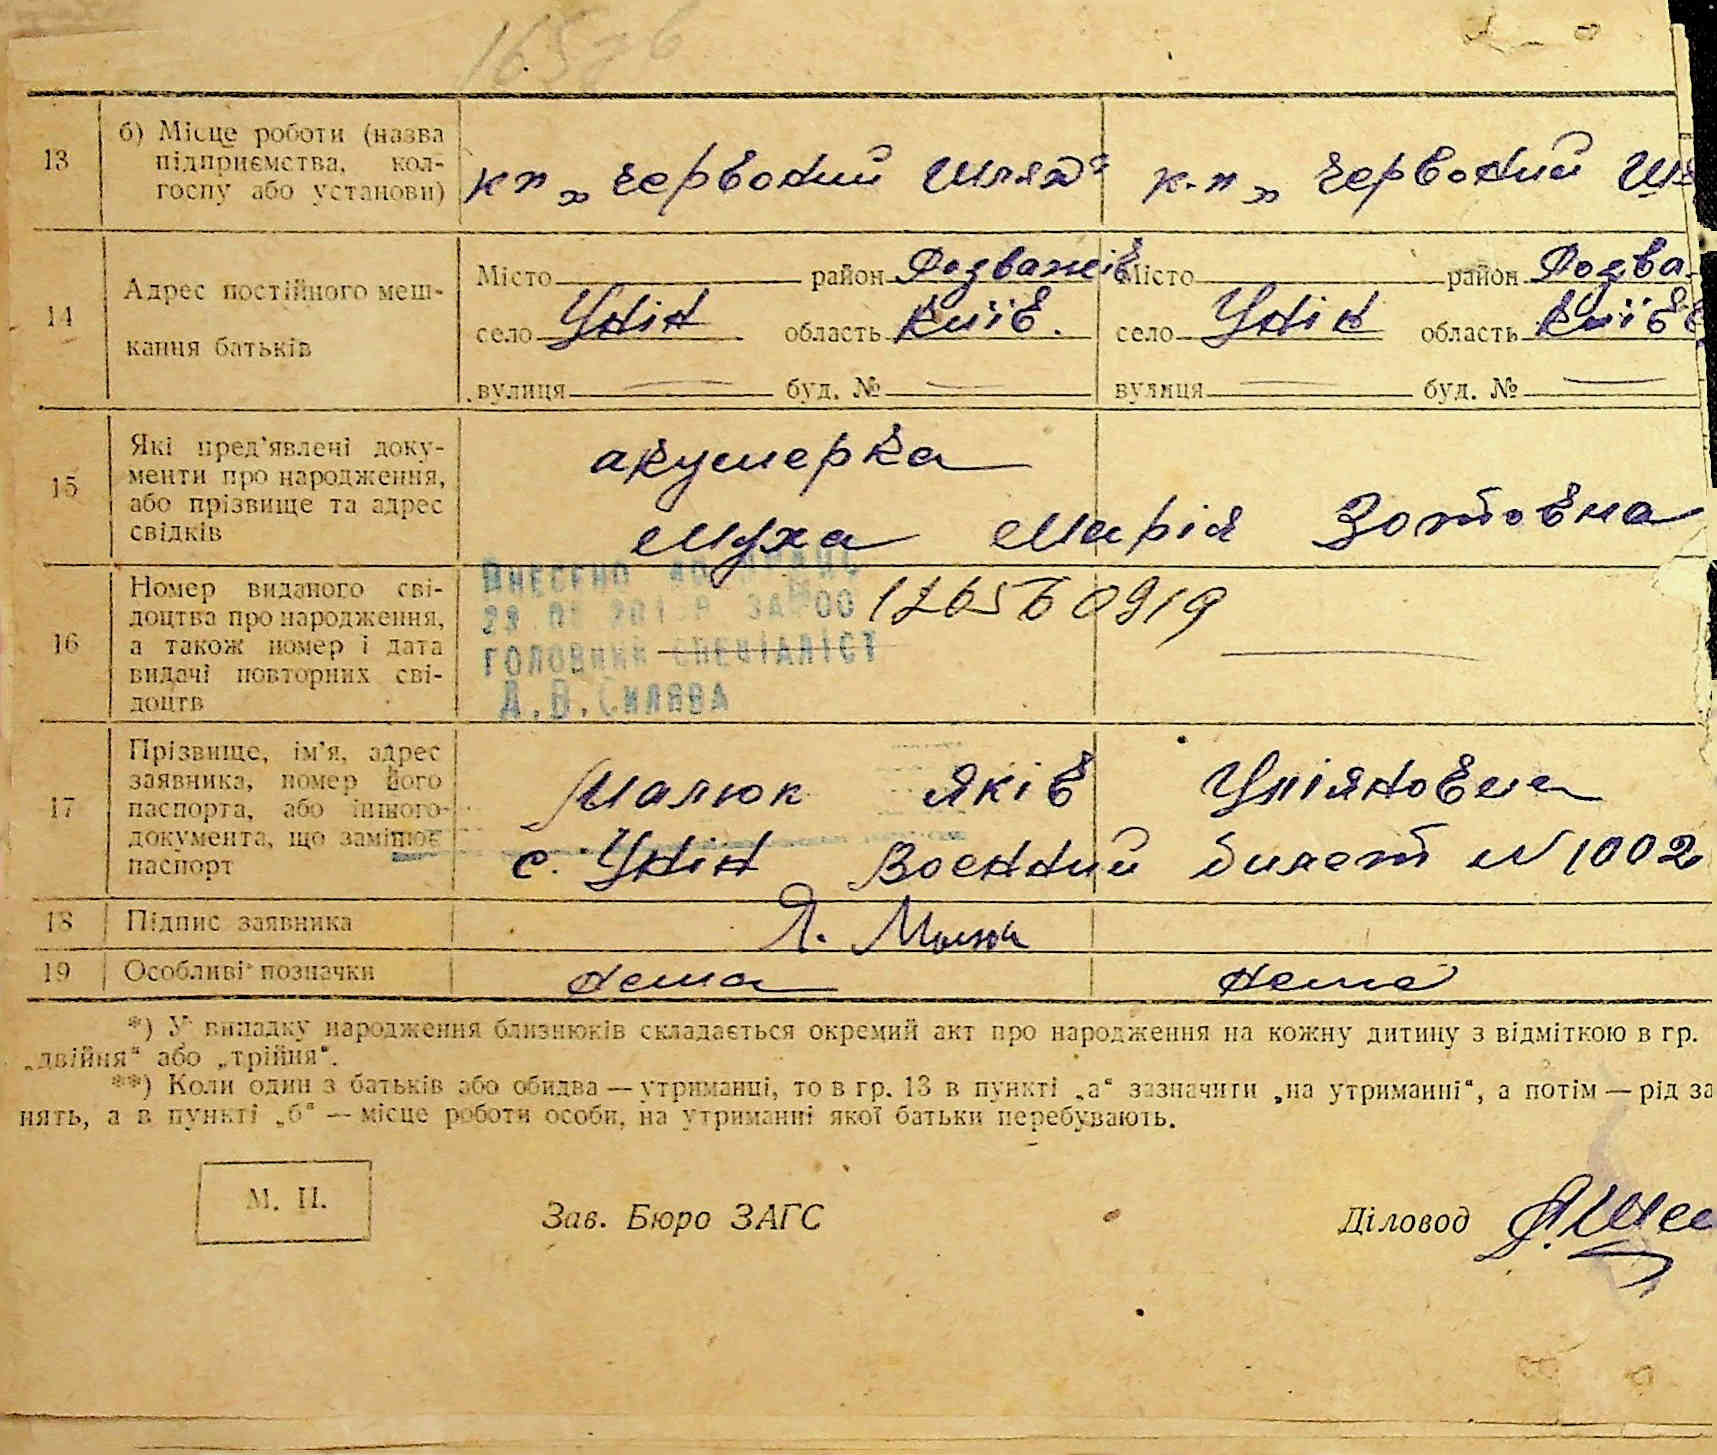 13 б) Місце роботи (назва підприємства, кол-госпу або установи) кп „Червоний Шлях“ к.п „Червоний Шл
14 Адрес постійного меш-кання батьків
Місто район Розважів Місто район Розва
село Унін область Київ. село Унін область Київ
вулиця — буд. № — вулиця — буд. № —
15 Які пред'явлені доку-менти про народження, або прізвище та адрес свідків
акушерка
Муха Марія Зотовна
16 Номер виданого сві-доцтва про народження, а також номер і дата видачі повторних сві-доцтв
Внесено
ГОЛОВНИЙ СПЕЦІАЛІСТ
17 Прізвище, ім'я, адрес заявника, номер його паспорта, або іншого документа, що замінює паспорт
Малюк Яків Уліянович
с. Унін Военний билет N 1002
18 Підпис заявника Я. Малюк
19 Особливі позначки нема нема
*) У випадку народження близнюків складається окремий акт про народження на кожну дитину з відміткою в гр.
„двійня“ або „трійня“.
**) Коли один з батьків або обидва — утриманці, то в гр. 13 в пункті „а“ зазначити „на утриманні“, а потім — рід за
нять, а в пункті „б“ — місце роботи особи, на утриманні якої батьки перебувають.
М. П. Зав. Бюро ЗАГС Діловод